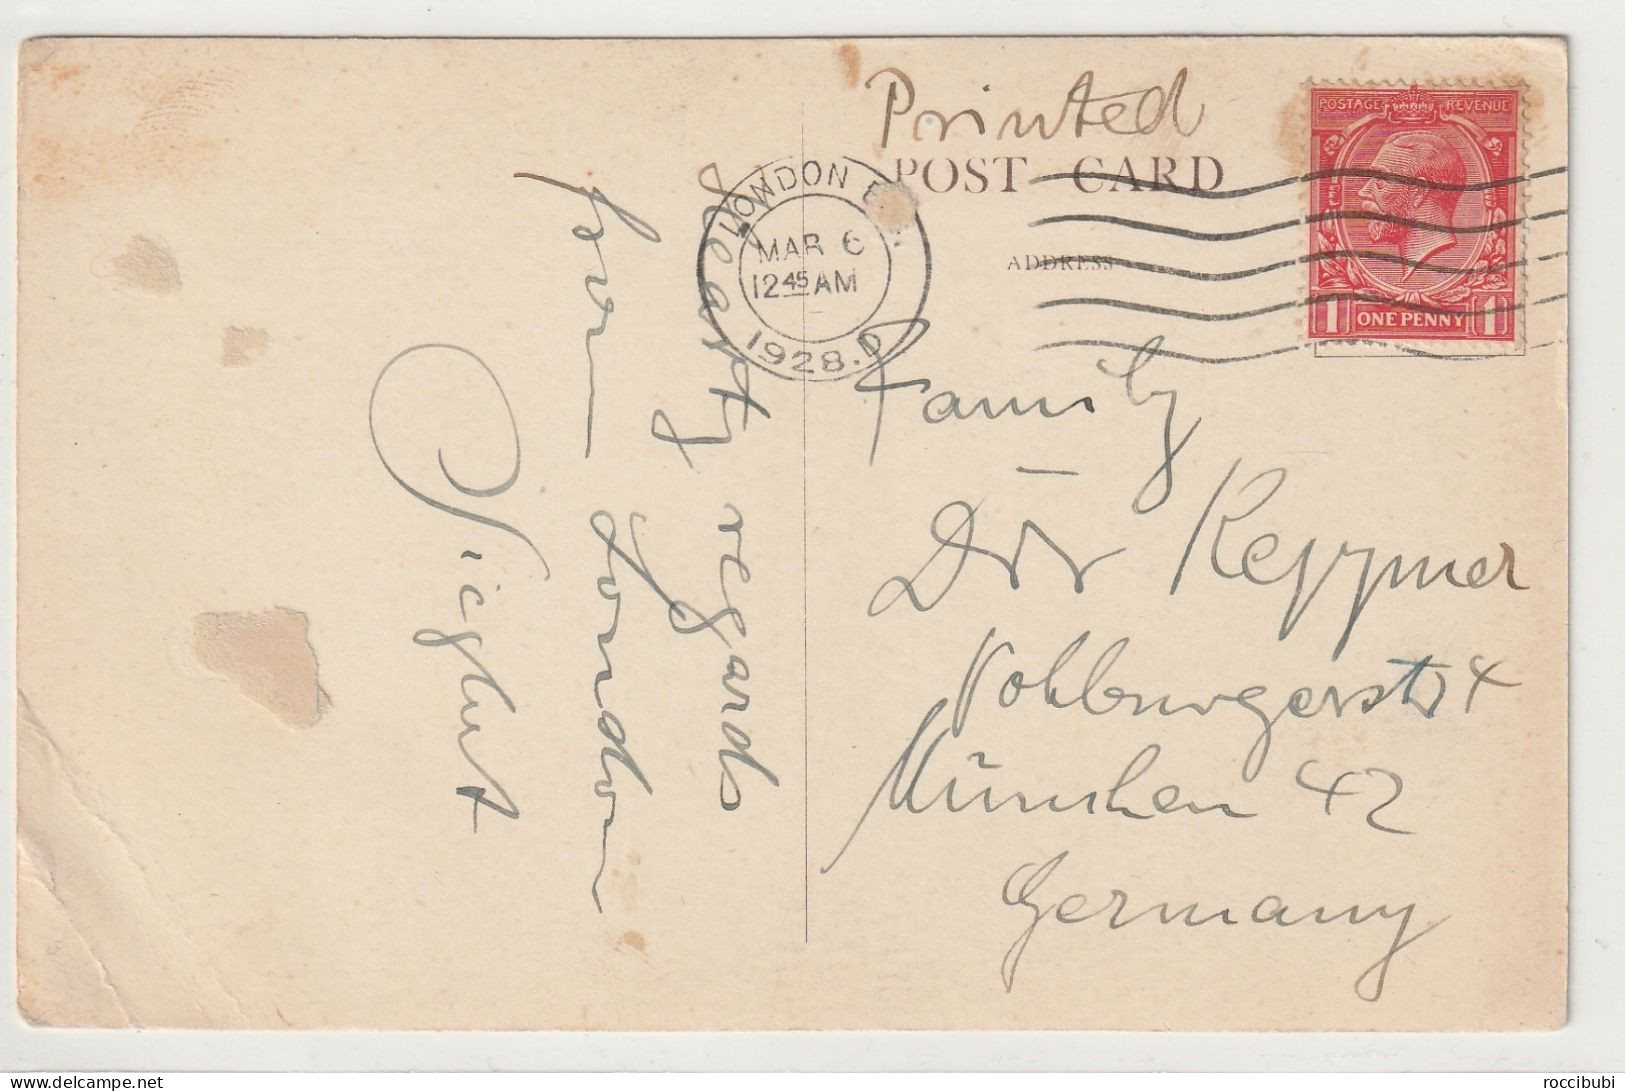 Printed
POST CARD
ADDRESS
POSTAGE REVENUE
1 ONE PENNY 1
LONDON
MAR 6
12 45 AM
1928. D
Family
Dr
Vohburgerstr 4
München 42
Germany
Hearty regards
from London
delcampe.net
roccibubi